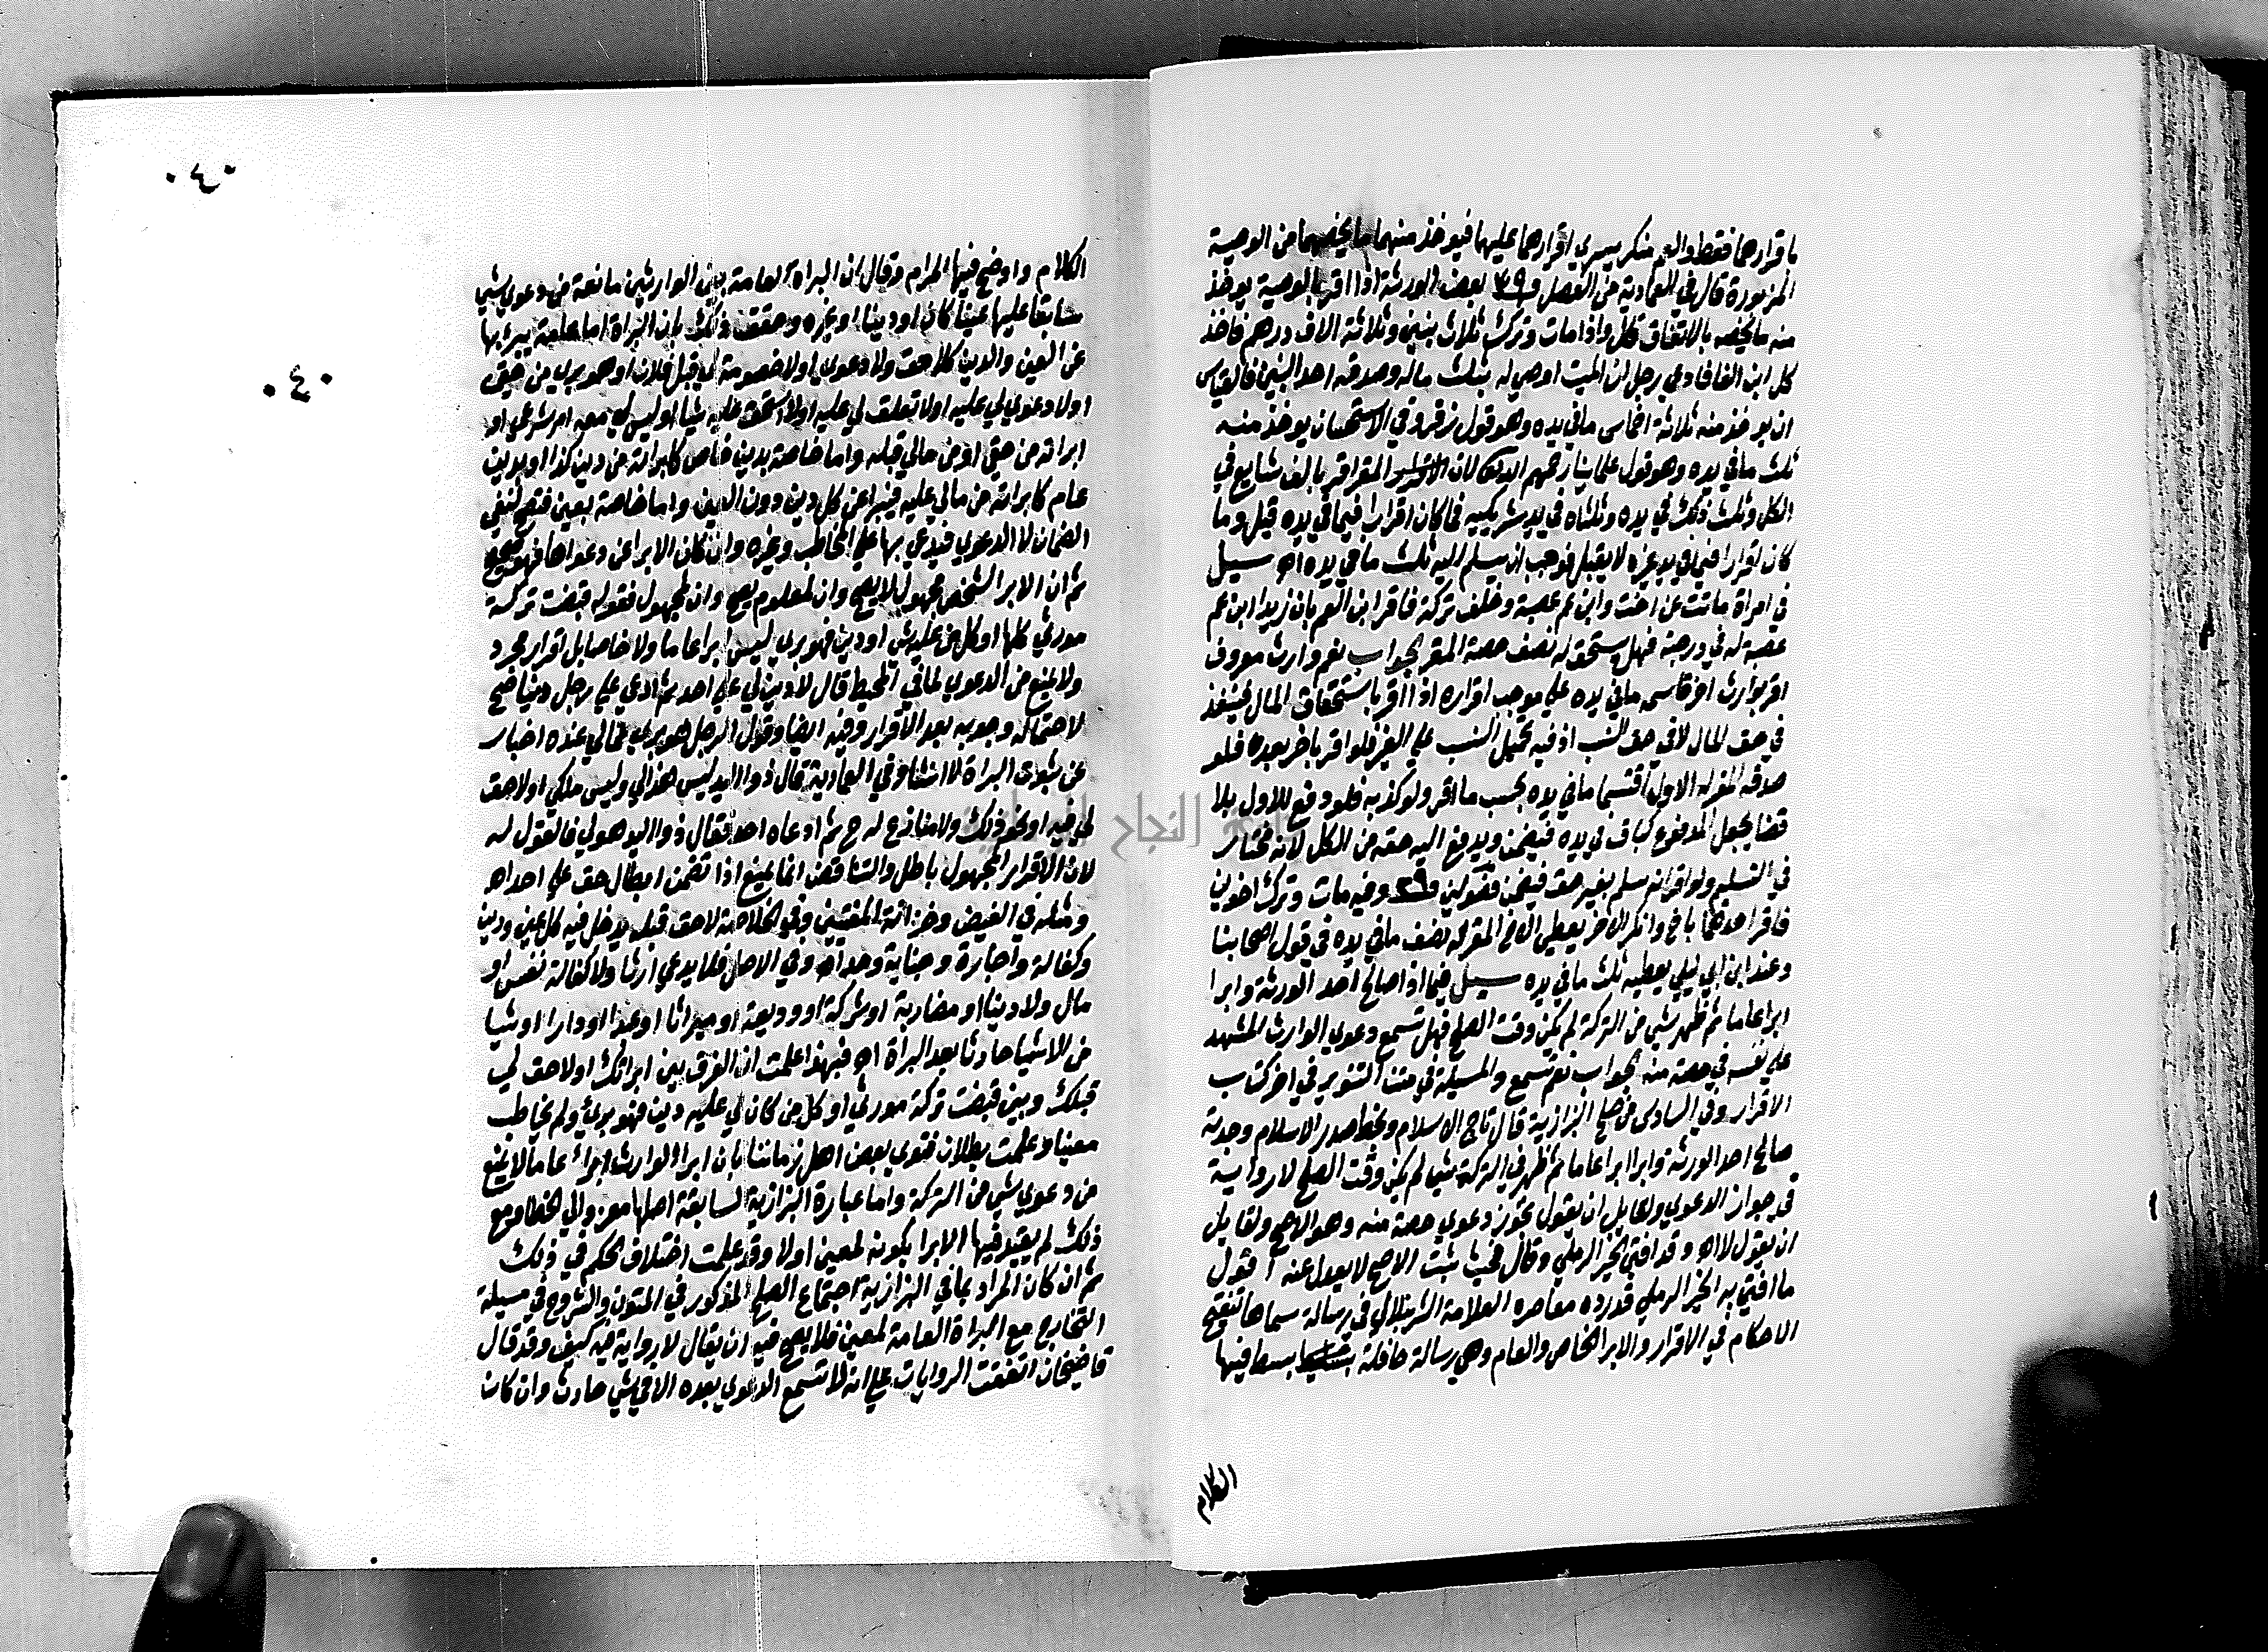 باقرارهما فقط والغير منكر يسري اقرارهما عليها فيوخذ منهما ما يخصهما من الوصية
المزبورة قال في العمادية من الفصل ٣٩ بعض الورثة اذا اقر بالوصية يوخذ
منه ما يخصه بالاتفاق قال واذا مات وترك ثلاث بنين وثلاثة الاف درهم فاخذ
كل ابن الفا فادعي رجل ان الميت اوصي له بثلث ماله وصدقه احد البنين فالقياس
ان يوخذ منه ثلاثة اخماس ما في يده وهو قول زفر وفي الاستحسان يوخذ منه
ثلث ما في يده وهو قول علماينا رحمهم الله لان المقر اقر بالف شايع في
الكل وثلث ذلك في يده وثلثاه في يد شريكيه فما كان اقرارا فيما في يده قبل وما
كان اقرارا في يد غيره لا يقبل فوجب ان يسلم اليه ثلث ما في يده اه سيل
في امراة ماتت عن اخت وابن عم عصبة وخلف تركة فاقر ابن العم بان زيدا ابن عم
عصبة له في درجته فهل يستحق له نصف حصة المقر الجواب نعم وارث معروف
اقر بوارث اخر قاسمه ما في يده علي موجب اقراره اذا اقر باستحقاق المال فينفذ
في حق المال لا في حق النسب اذ فيه تحميل النسب علي الغير فلو اقر باخر بعده فلو
صدقه المقر له الاول اقتسما ما في يده بحسب ما اقر ولو كذبه فلو دفع للاول بلا
قضا يجعل المدفوع كباق في يده فيضمن ويدفع اليه حقه من الكل لانه مختار
في التسليم ولو اقر انه سلم بغير حق فيضمن فصولين ٢٩ وفيه مات وترك اخوين
فاقر احدهما باخ وانكر الاخر يعطي الاخ المقر له نصف ما في يده في قول اصحابنا
وعند ابن ابي ليلي يعطيه ثلث ما في يده سيل فيما اذا صالح احد الورثة وابرا
ابرا عاما ثم ظهر شي من التركة لم يكن وقت الصلح فهل تسمع دعوي الوارث المشهد
علي نفسه في حصته منه الجواب نعم تسمع والمسيلة في متن التنوير في اخر كتاب
الاقرار وفي السادس من صلح البزازية قال تاج الاسلام وبخط صدر الاسلام وجدته
صالح احد الورثة وابرا ابرا عاما ثم ظهر في التركة شي لم يكن وقت الصلح لا رواية
في جواز الدعوي ولقايل ان يقول تجوز دعوي حصته منه وهو الاصح ولقايل
ان يقول لا اه وقد افتي الخير الرملي وقال فحيث ثبت الاصح لا يعدل عنه اقول
ما افتي به الخير الرملي قد رده معاصره العلامة الشرنبلالي في رسالة سماها تنقيح
الاحكام في الاقرار والابرا الخاص والعام وهي رسالة حافلة بسط فيها
الكلام
٠٤٠
٠٤٠
الكلام واوضح فيها المرام وقال ان البراة العامة بين الوارثين مانعة من دعوي شي
سابقا عليها عينا كان او دينا او غيره وحقق ذلك بان البراة اما عامة يبرا بها
عن العين والدين كلا حق ولا دعوي او لا خصومة لي قبل فلان او هو بري من حقي
او لا دعوي لي عليه او لا تعلق لي عليه او لا استحق عليه شيا او ليس لي معه امر شرعي او
ابراته من حقي او من مالي قبله واما خاصة بدين خاص كابراته من دين كذا او بدين
عام كابراته من مالي عليه فيبرا عن كل دين دون العين واما خاصة بعين فتصح لنفي
الضمان لا الدعوي فيدعي بها علي المخاطب وغيره وان كان الابرا عن دعواها فهو صحيح
ثم ان الابرا لشخص مجهول لا يصح وان لمعلوم يصح وان لمجهول فقوله قبضت تركة
مورثي كلها او كل من عليه شي او دين فهو بري ليس ابرا عاما ولا خاصا بل اقرار مجرد
ولا يمنع من الدعوي لما في المحيط قال لا دين لي علي احد ثم ادعي علي رجل دينا صح
لاحتماله وجوبه بعد الاقرار وفيه ايضا وقول الرجل هو بري مما لي عنده اخبار
عن ثبوت البراة لا انشا وفي العمادية قال ذو اليد ليس هذا لي وليس ملكي او لا حق
لي فيه او نحو ذلك ولا منازع له ح ثم ادعاه احد فقال ذو اليد هو لي فالقول له
لان الاقرار لمجهول باطل والتناقض انما يمنع اذا تضمن ابطال حق علي احد اه
ومثله في الفيض وخزانة المفتيين وفي الخلاصة لا حق قبله يدخل فيه كل عين ودين
وكفالة واجارة وجناية وحد اه وفي الاصل فلا يدعي ارثا ولا كفالة نفس او
مال ولا دينا او مضاربة او شركة او وديعة او ميراثا او عبدا او دارا او شيا
من الاشيا حادثا بعد البراة اه فبهذا علمت ان الفرق بين ابراتك او لا حق لي
قبلك وبين قبضت تركة مورثي او كل من كان لي عليه دين فهو بريء ولم يخاطب
معينا وعلمت بطلان فتوي بعض اهل زماننا بان ابرا الوارث ابراء عاما لا يمنع
من دعوي شي من التركة واما عبارة البزازية السابقة اصلها معزو الي المحيط ومع
ذلك لم يقيد فيها الابرا بكونه لمعين او لا وقد علمت اختلاف الحكم في ذلك
ثم ان كان المراد بما في البزازية اجتماع الصلح المذكور في المتون والشروح في مسيلة
التخارج مع البراة العامة لمعين فلا يصح فيه ان يقال لا رواية فيه كيف وقد قال
قاضيخان اتفقت الروايات علي انه لا تسمع الدعوي بعده الا في شي حادث وان كان